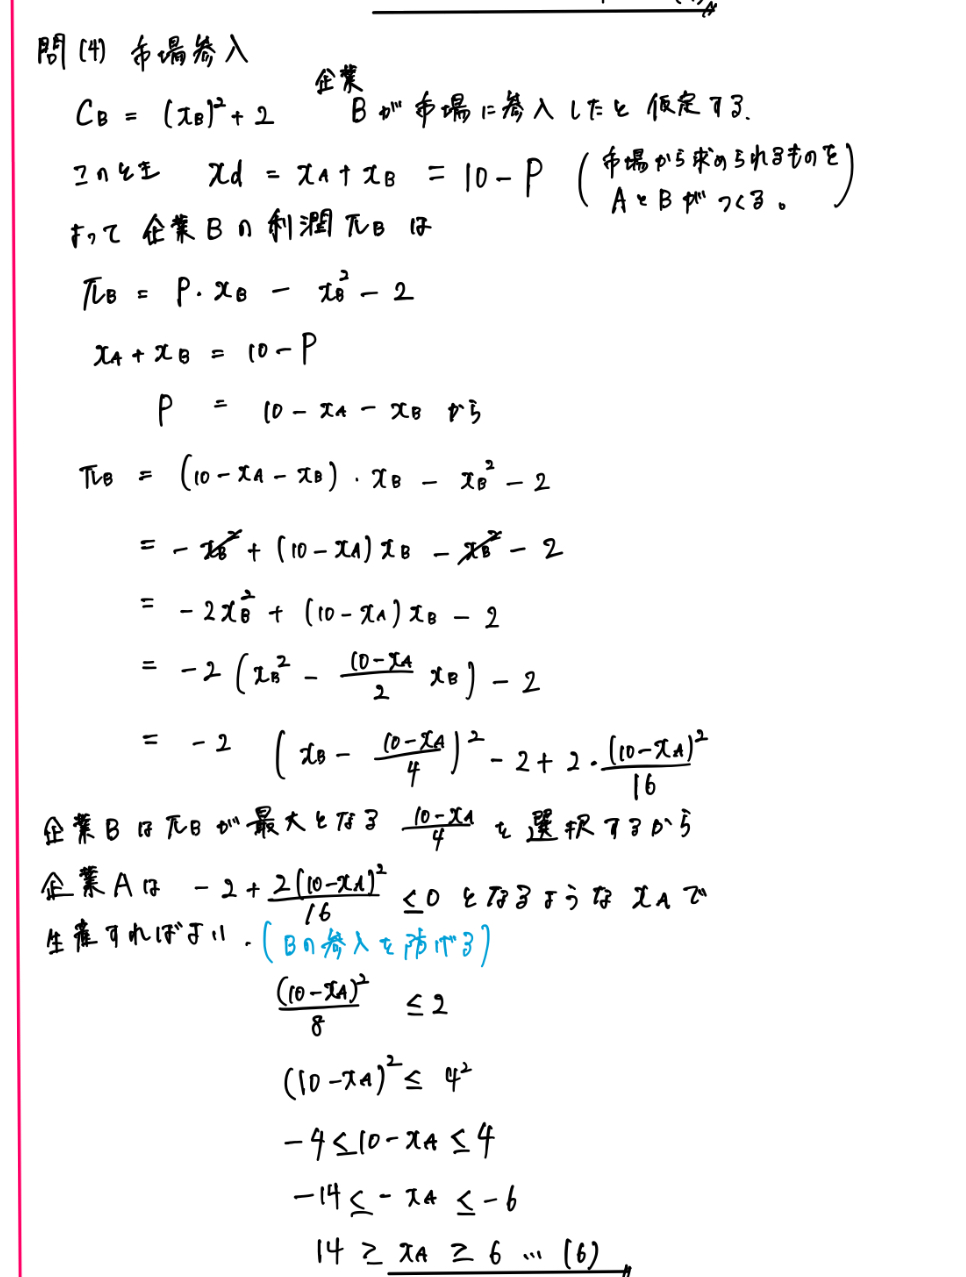 問(4) 市場参入
C_B = (x_B)²+2 企業Bが市場に参入したと仮定する.
このとき xd = x_A + x_B = 10 - P (市場から求められるものをAとBがつくる。)
よって 企業Bの利潤π_Bは
π_B = P・x_B - x_B² - 2
x_A + x_B = 10 - P
P = 10 - x_A - x_B から
π_B = (10 - x_A - x_B)・x_B - x_B² - 2
= - x_B² + (10 - x_A)x_B - x_B² - 2
= -2x_B² + (10 - x_A)x_B - 2
= -2(x_B² - (10-x_A)/2 x_B) - 2
= -2 (x_B - (10-x_A)/4)² - 2 + 2・(10-x_A)²/16
企業Bはπ_Bが最大となる (10-x_A)/4 を選択するから
企業Aは -2 + 2(10-x_A)²/16 ≤0 となるような x_Aで
生産すればよい.(Bの参入を防げる)
(10-x_A)²/8 ≤ 2
(10-x_A)² ≤ 4²
-4 ≤ 10 - x_A ≤ 4
-14 ≤ - x_A ≤ -6
14 ≥ x_A ≥ 6 … (6)